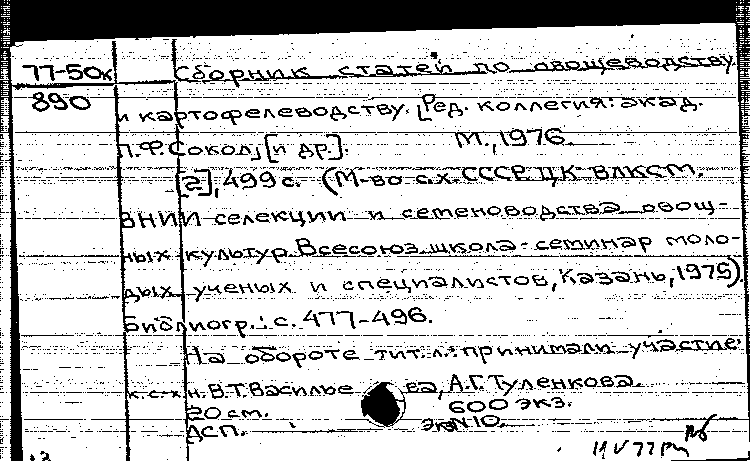 77-50к
890
Сборник статей по овощеводству
и картофелеводству. [Ред. коллегия: акад.
П.Ф. Сокол, [и др.]. М., 1976.
[2], 499 с. (М-во с.х. СССР. ЦК ВЛКСМ.
ВНИИ селекции и семеноводства овощ-
ных культур. Всесоюз. школа-семинар моло-
дых ученых и специалистов, Казань, 1975)
Библиогр.: с. 477-496.
На обороте тит. л.: принимали участие:
к. с.-х. н. В.Т. Василье ва, А.Г. Туленкова.
20 см. 600 экз.
АСП. экз N 10.